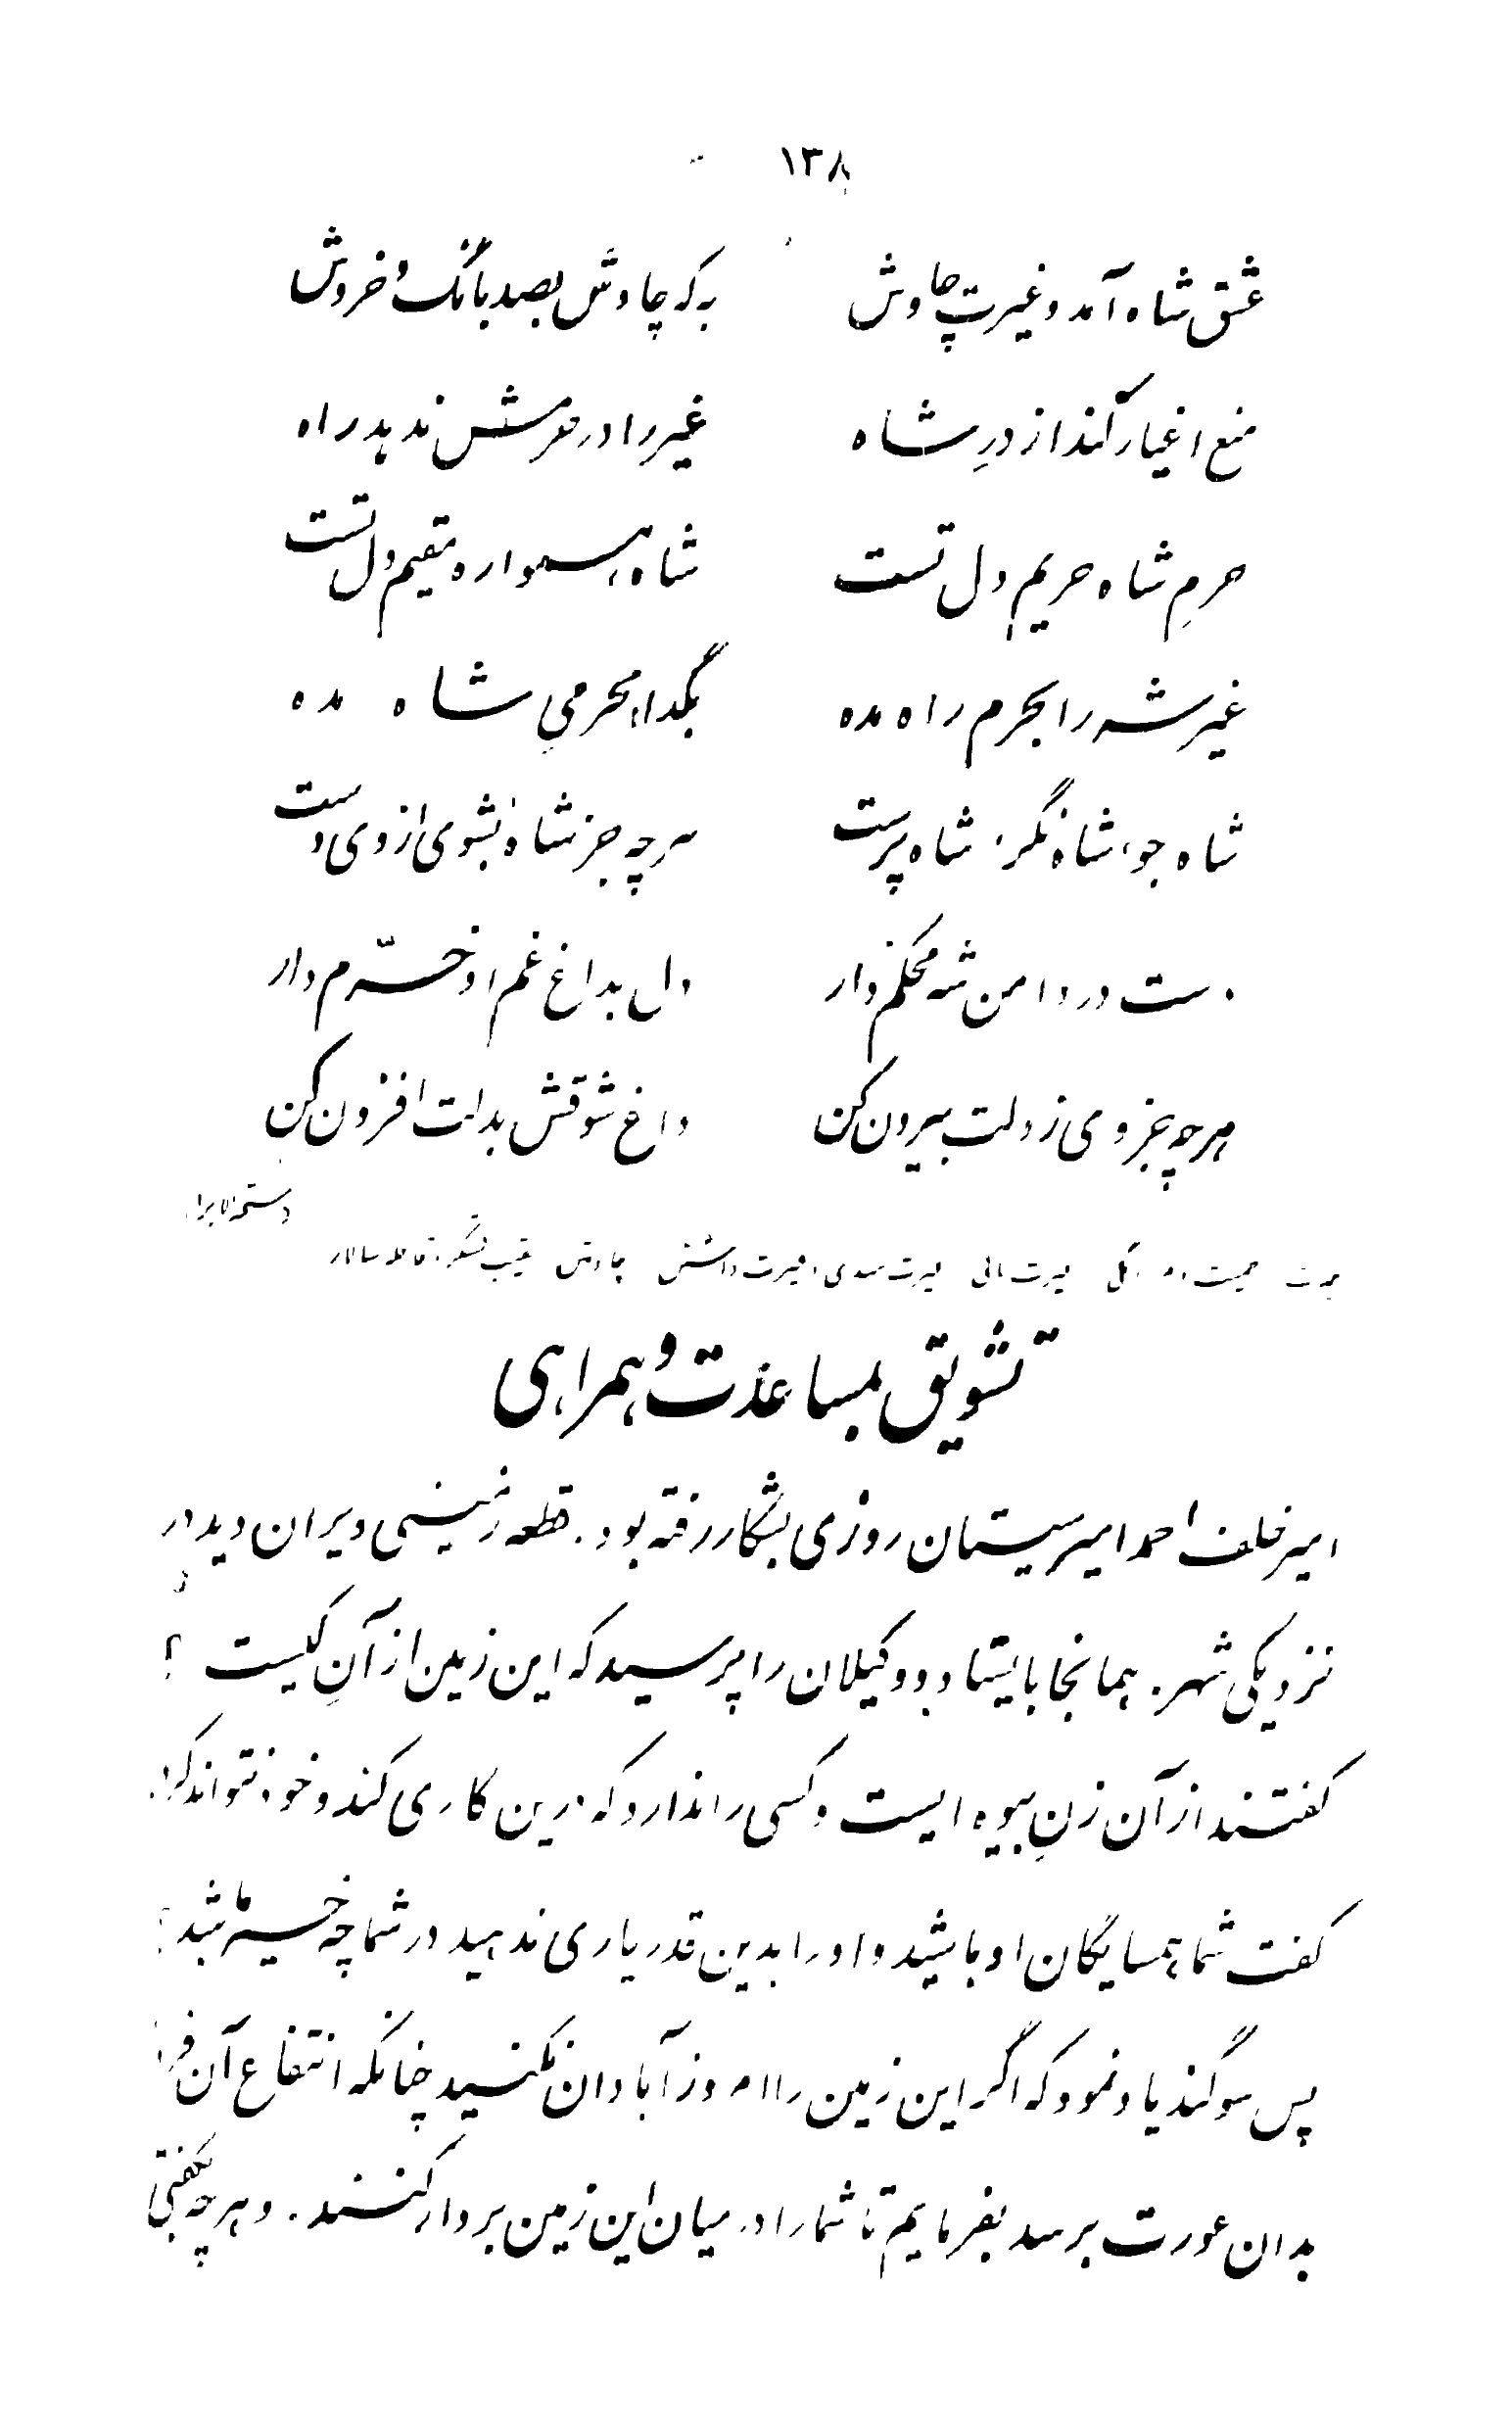 ۱۳۸
عشق شاه آمد و غیرت چاوش
به که چاوش بصد بانگ و خروش
منع اغیار کند از درِ شاه
غیر را در حرمش ندهد راه
حرمِ شاه حریمِ دل تست
شاه همواره مقیم دل تست
غیر شه را بحرم راه مده
بگدا محرمیِ شاه مده
شاه جو، شاه نگر، شاه پرست
هرچه جز شاه بشوی از وی دست
دست در دامن شه محکم دار
دل بداغ غم او خرّم دار
هرچه جز وی ز دلت بیرون کن
داغ شوقش بدلت افزون کن
چاوش نقیب لشکر، قافله سالار
تشویق بمساعدت و همراهی
امیر خلف احمد امیر سیستان روزی بشکار رفته بود. قطعه زمینی ویران دید در
نزدیکی شهر. همانجا بایستاد و وکیلان را پرسید که این زمین از آنِ کیست ؟
گفتند از آن زنِ بیوه ایست و کسی را ندارد که درین کاری کند و خود نتواند کرد.
گفت شما همسایگان او باشید و او را بدین قدر یاری ندهید در شما چه خیر باشد؟
پس سوگند یاد نمود که اگر این زمین را امروز آبادان نکنید چنانکه انتفاع آن فردا
بدان عورت برسد بفرمایم تا شما را در میان این زمین بردار کنند. و هرچه بگفتی